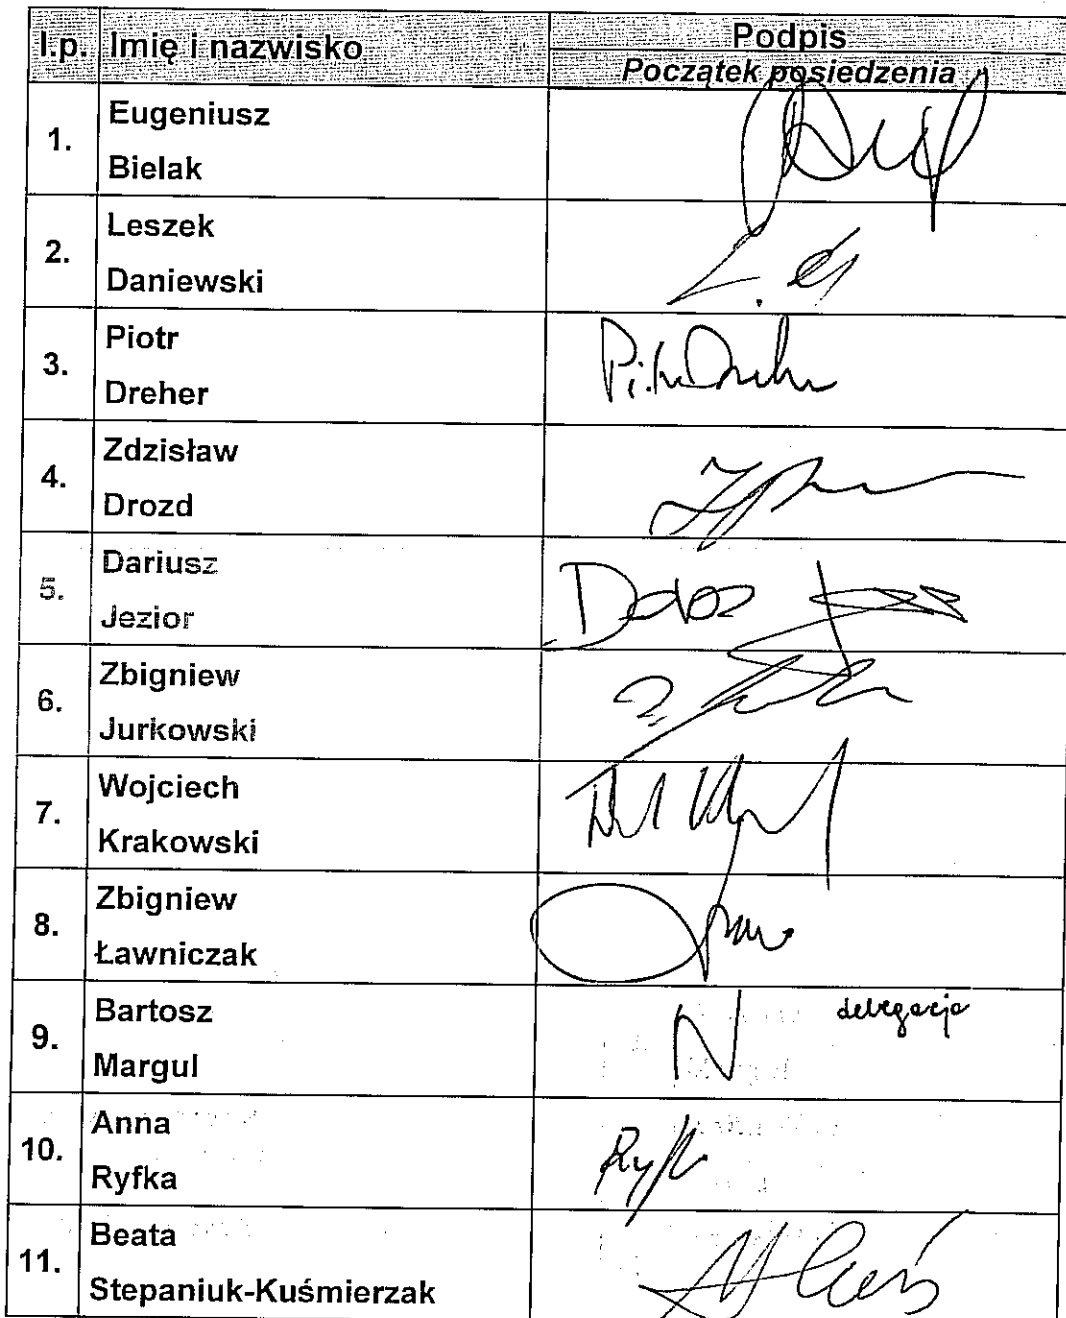 l.p. Imię i nazwisko Podpis
Początek posiedzenia
1. Eugeniusz
Bielak
2. Leszek
Daniewski
3. Piotr
Dreher
4. Zdzisław
Drozd
5. Dariusz
Jezior
6. Zbigniew
Jurkowski
7. Wojciech
Krakowski
8. Zbigniew
Ławniczak
9. Bartosz
Margul
N delegacja
10. Anna
Ryfka
11. Beata
Stepaniuk-Kuśmierzak